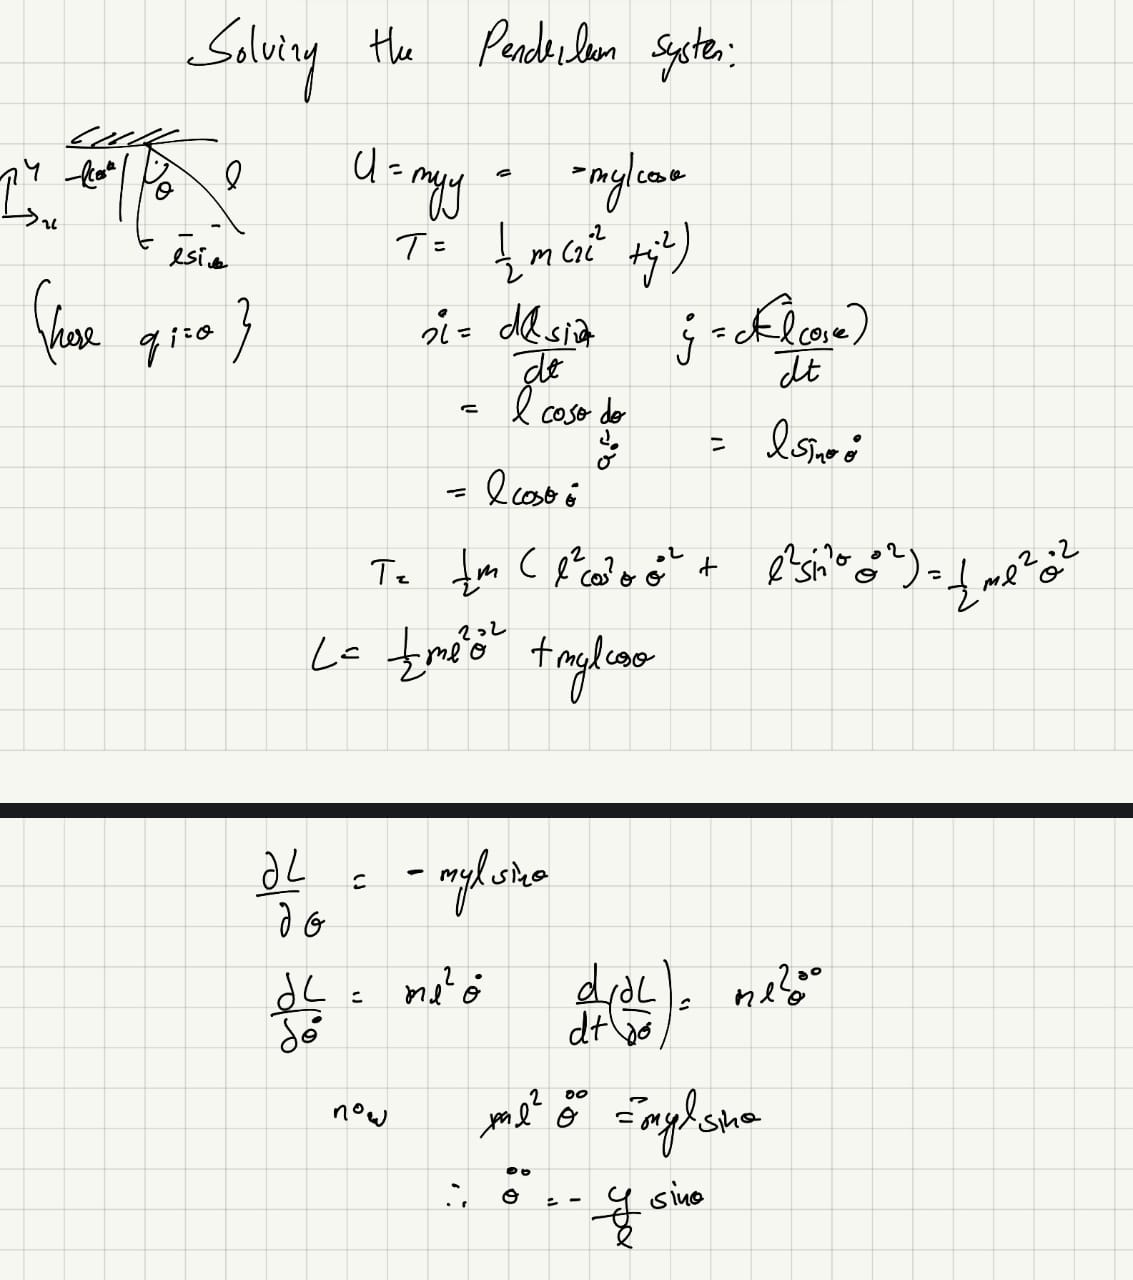 Solving the Pendulum system:
y
-lcosθ
θ
l
x
lsinθ
U = mgy = -mglcosθ
T = 1/2 m(ẋ² + ẏ²)
{here qi = θ}
ẋ = dlsinθ/dt ẏ = d(-lcosθ)/dt
= lcosθ dθ
↓
θ̇
= lsinθ θ̇
= lcosθ θ̇
T = 1/2 m (l²cos²θ θ̇² + l²sin²θ θ̇²) = 1/2 ml²θ̇²
L = 1/2 ml²θ̇² + mglcosθ
∂L/∂θ = -mglsinθ
∂L/∂θ̇ = ml²θ̇ d/dt(∂L/∂θ̇) = ml²θ̈
now ml²θ̈ = -mglsinθ
∴ θ̈ = -g/l sinθ